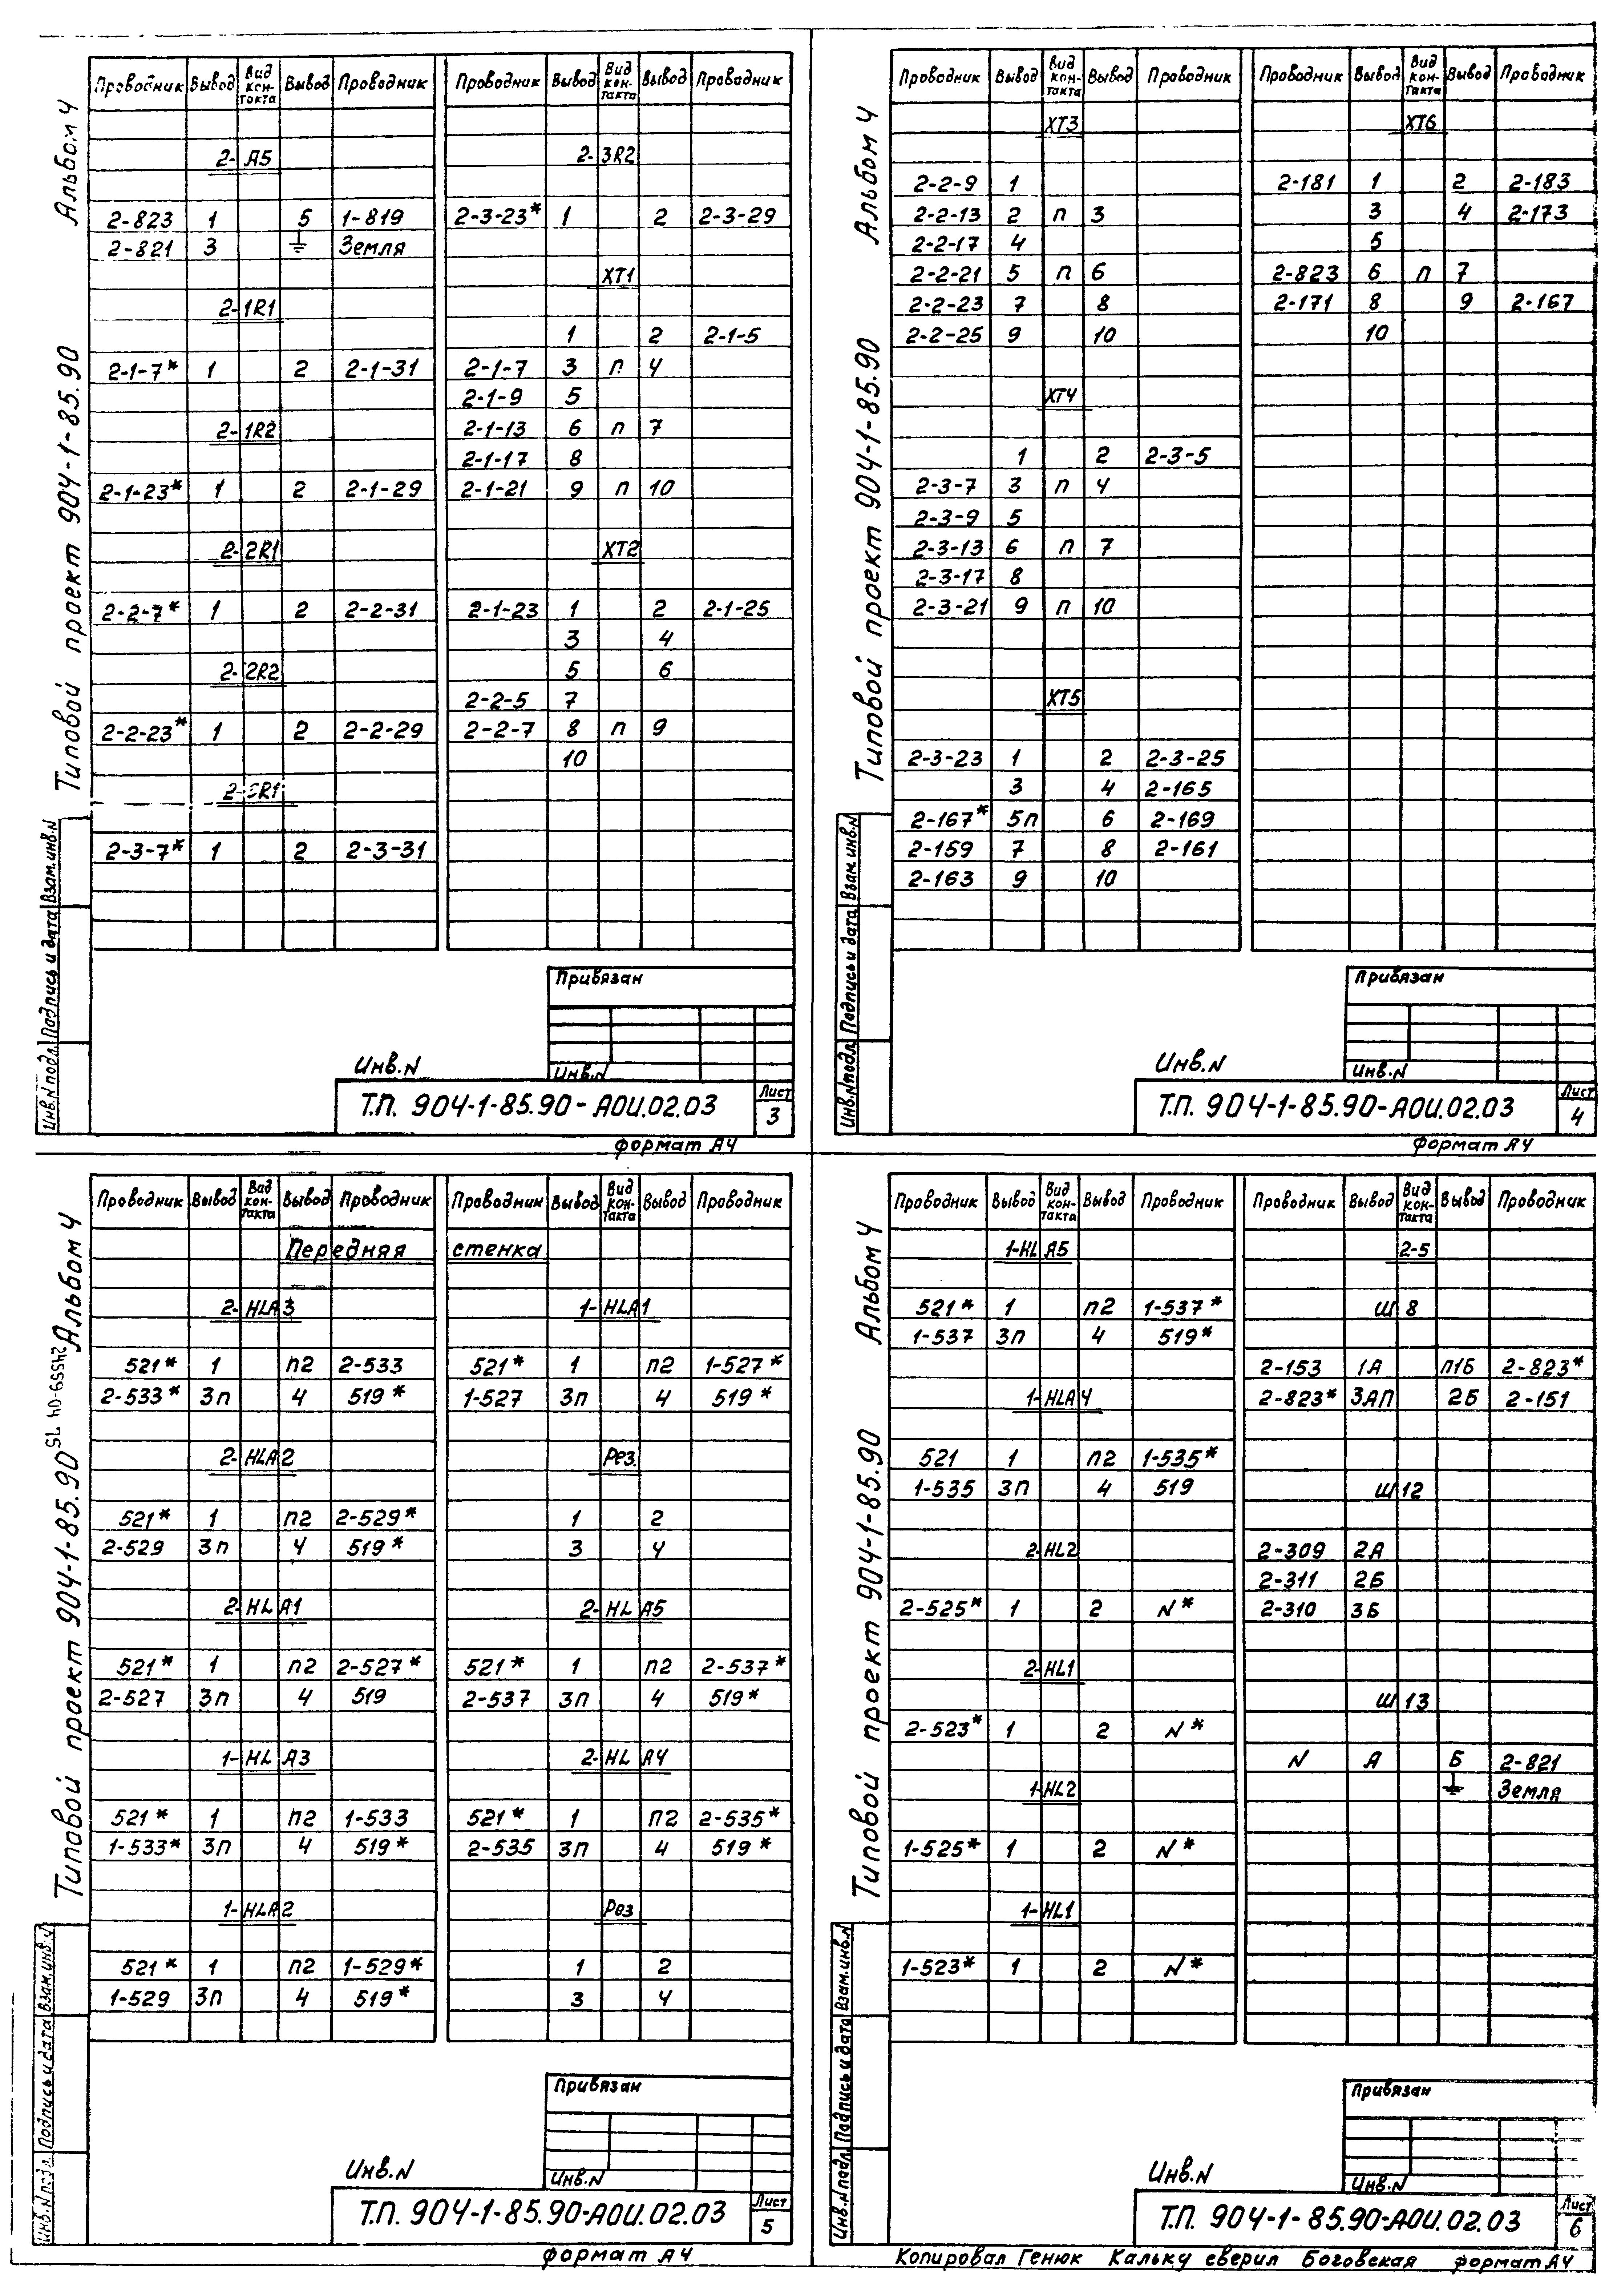 Альбом 4
Типовой проект 904-1-85.90
Проводник Вывод Вид контакта Вывод Проводник
2-A5
2-823 1 5 1-819
2-821 3 ⏚ Земля
2-1R1
2-1-7* 1 2 2-1-31
2-1R2
2-1-23* 1 2 2-1-29
2-2R1
2-2-7* 1 2 2-2-31
2-2R2
2-2-23* 1 2 2-2-29
2-3R1
2-3-7* 1 2 2-3-31
Проводник Вывод Вид контакта Вывод Проводник
2-3R2
2-3-23* 1 2 2-3-29
XT1
1 2 2-1-5
2-1-7 3 п 4
2-1-9 5
2-1-13 6 п 7
2-1-17 8
2-1-21 9 п 10
XT2
2-1-23 1 2 2-1-25
3 4
5 6
2-2-5 7
2-2-7 8 п 9
10
Инв.N подл. Подпись и дата Взам.инв.N
Привязан
Инв.N
Инв.N
Т.П. 904-1-85.90-АОИ.02.03
Лист
3
формат А4
Альбом 4
Типовой проект 904-1-85.90
Проводник Вывод Вид контакта Вывод Проводник
XT3
2-2-9 1
2-2-13 2 п 3
2-2-17 4
2-2-21 5 п 6
2-2-23 7 8
2-2-25 9 10
XT4
1 2 2-3-5
2-3-7 3 п 4
2-3-9 5
2-3-13 6 п 7
2-3-17 8
2-3-21 9 п 10
XT5
2-3-23 1 2 2-3-25
3 4 2-165
2-167* 5п 6 2-169
2-159 7 8 2-161
2-163 9 10
Проводник Вывод Вид контакта Вывод Проводник
XT6
2-181 1 2 2-183
3 4 2-173
5
2-823 6 п 7
2-171 8 9 2-167
10
Инв.N подл. Подпись и дата Взам.инв.N
Привязан
Инв.N
Инв.N
Т.П. 904-1-85.90-АОИ.02.03
Лист
4
формат А4
Альбом 4
Типовой проект 904-1-85.90
24559-04 15
Проводник Вывод Вид контакта Вывод Проводник
Передняя стенка
2-HLA3
521* 1 п2 2-533
2-533* 3п 4 519*
2-HLA2
521* 1 п2 2-529*
2-529 3п 4 519*
2-HLA1
521* 1 п2 2-527*
2-527 3п 4 519
1-HLA3
521* 1 п2 1-533
1-533* 3п 4 519*
1-HLA2
521* 1 п2 1-529*
1-529 3п 4 519*
Проводник Вывод Вид контакта Вывод Проводник
1-HLA1
521* 1 п2 1-527*
1-527 3п 4 519*
Рез.
1 2
3 4
2-HLA5
521* 1 п2 2-537*
2-537 3п 4 519*
2-HLA4
521* 1 п2 2-535*
2-535 3п 4 519*
Рез
1 2
3 4
Инв.N подл. Подпись и дата Взам.инв.N
Привязан
Инв.N
Инв.N
Т.П. 904-1-85.90-АОИ.02.03
Лист
5
формат А4
Альбом 4
Типовой проект 904-1-85.90
Проводник Вывод Вид контакта Вывод Проводник
1-HLA5
521* 1 п2 1-537*
1-537 3п 4 519*
1-HLA4
521 1 п2 1-535*
1-535 3п 4 519
2-HL2
2-525* 1 2 N*
2-HL1
2-523* 1 2 N*
1-HL2
1-525* 1 2 N*
1-HL1
1-523* 1 2 N*
Проводник Вывод Вид контакта Вывод Проводник
2-5
Ш8
2-153 1А п1Б 2-823*
2-823* 3АП 2Б 2-151
Ш12
2-309 2А
2-311 2Б
2-310 3Б
Ш13
N А Б 2-821
⏚ Земля
Инв.N подл. Подпись и дата Взам.инв.N
Привязан
Инв.N
Инв.N
Т.П. 904-1-85.90-АОИ.02.03
Лист
6
Копировал Генюк Кальку сверил Боговская формат А4